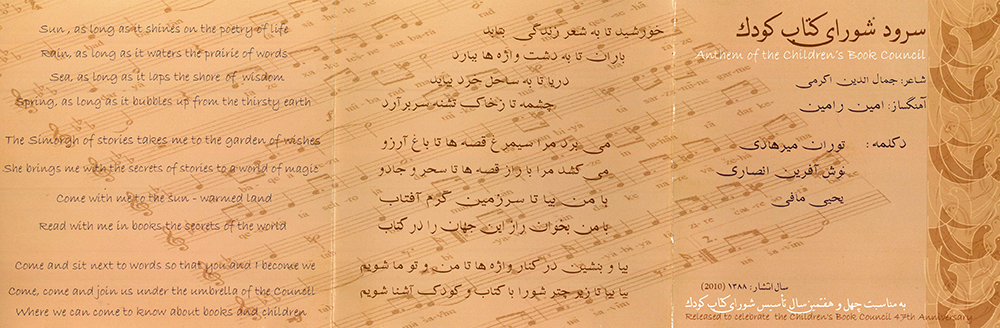 سرود شورای کتاب کودک
Anthem of the Children's Book Council
شاعر: جمال الدین اکرمی
آهنگساز: امین رامین
دکلمه: توران میرهادی
نوش آفرین انصاری
یحیی مافی
سال انتشار: ۱۳۸۸ (2010)
به مناسبت چهل و هفتمین سال تأسیس شورای کتاب کودک
Released to celebrate the Children's Book Council 47th Anniversary
خورشید تا به شعر زندگی بتابد
باران تا به دشت واژه ها ببارد
دریا تا به ساحل خرد بیاید
چشمه تا زخاک تشنه سربرآرد
می برد مرا سیمرغ قصه ها تا باغ آرزو
می کشد مرا با راز قصه ها تا سحر و جادو
با من بیا تا سرزمین گرم آفتاب
با من بخوان راز این جهان را در کتاب
بیا و بنشین در کنار واژه ها تا من و تو ما شویم
بیا بیا تا زیر چتر شورا با کتاب و کودک آشنا شویم
Sun , as long as it shines on the poetry of life
Rain, as long as it waters the prairie of words
Sea, as long as it laps the shore of wisdom
Spring, as long as it bubbles up from the thirsty earth
The Simorgh of stories takes me to the garden of wishes
She brings me with the secrets of stories to a world of magic
Come with me to the sun - warmed land
Read with me in books the secrets of the world
Come and sit next to words so that you and I become we
Come, come and join us under the umbrella of the Council
Where we can come to know about books and children